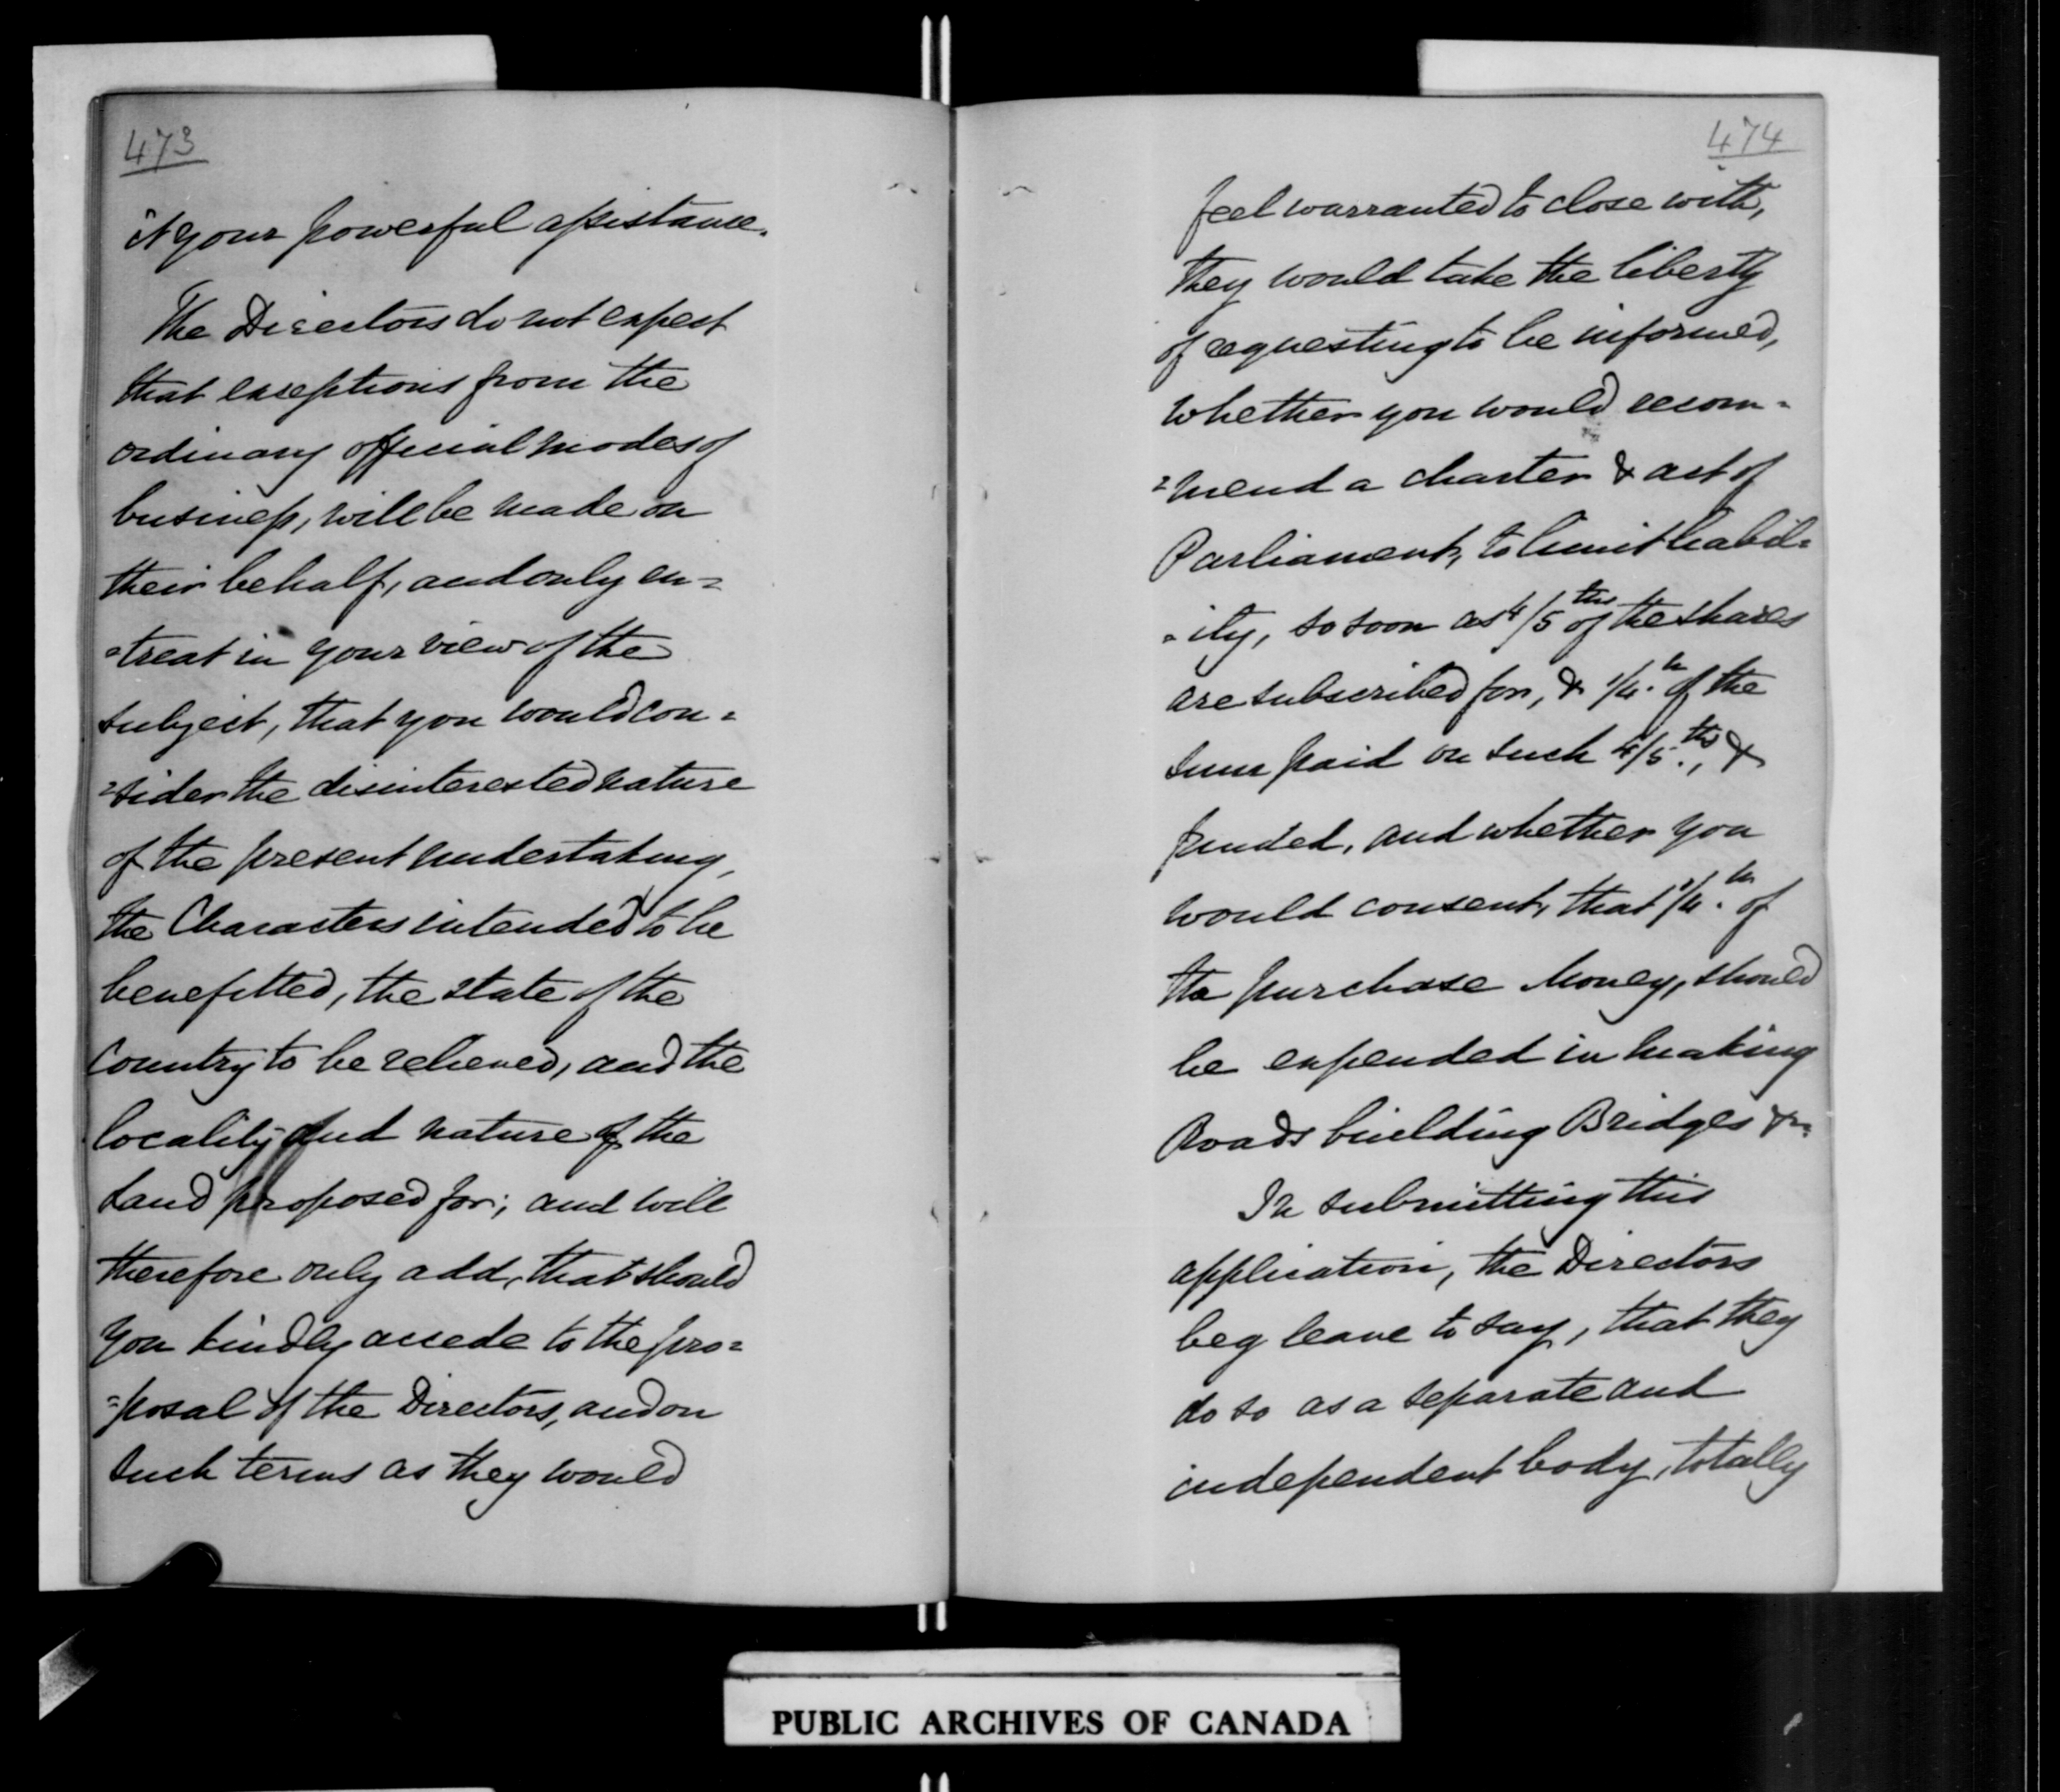 473
it your powerful assistance.
The Directors do not expect
that exceptions from the
ordinary official modes of
business, will be made on
their behalf, and only en=
=treat in your view of the
subject, that you would con=
=sider the disinterested nature
of the present undertaking,
the Characters intended to be
benefitted, the state of the
Country to be relieved, and the
locality and nature of the
Land proposed for; and will
therefore only add, that should
you kindly accede to the pro=
=posal of the Directors, and on
such terms as they would
474
feel warranted to close with,
they would take the liberty
of requesting to be informed,
whether you would recom=
=mend a charter & act of
Parliament, to limit liabil=
=ity, so soon as 4/5ths of the shares
are subscribed for, & 1/4.th of the
sum paid on such 4/5.ths, &
funded, and whether you
would consent, that 1/4.th of
the purchase Money, should
be expended in making
Roads building Bridges &c.
In submitting this
application, the Directors
beg leave to say, that they
do so as a separate and
independent body, totally
PUBLIC ARCHIVES OF CANADA